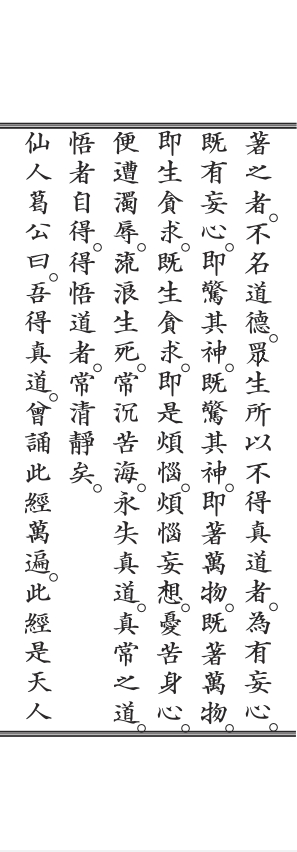 著之者。不名道德。眾生所以不得真道者。為有妄心。
既有妄心。即驚其神。既驚其神。即著萬物。既著萬物。
即生貪求。既生貪求。即是煩惱。煩惱妄想。憂苦身心。
便遭濁辱。流浪生死。常沉苦海。永失真道。真常之道。
悟者自得。得悟道者。常清靜矣。
仙人葛公曰。吾得真道。曾誦此經萬遍。此經是天人